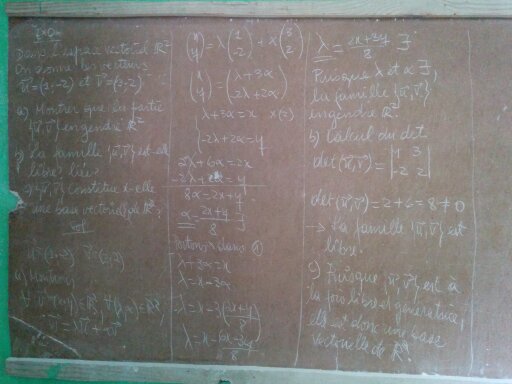 Dans l'espace vectoriel ℝ²
On donne les vecteurs
u⃗=(1;-2) et v⃗=(3;2)
a) Montrer que la partie
{u⃗,v⃗} engendre ℝ²
b) La famille {u⃗,v⃗} est-elle
libre, liée?
une base vectorielle de ℝ²?
a) Montrons
(x y) = λ(1 -2) + α(3 2)
(x y) = (λ+3α -2λ+2α)
λ+3α=x ×(2)
-2λ+2α=y
2λ+6α=2x
-2λ+2α=y
8α=2x+y
α=2x+y/8 ∃
Portons α dans ①
λ+3α=x
λ=x-3α
λ=x-3(2x+y/8)
λ=x-6x-3y/8
λ=2x+3y/8 ∃
Puisque λ et α ∃,
la famille {u⃗,v⃗}
engendre ℝ².
b) Calcul du det
det(u⃗,v⃗)=|1 3 -2 2|
det(u⃗,v⃗)=2+6=8≠0
→ La famille {u⃗,v⃗} est
libre.
c) Puisque {u⃗,v⃗} est à
la fois libre et génératrice,
elle est donc une base
vectorielle de ℝ².